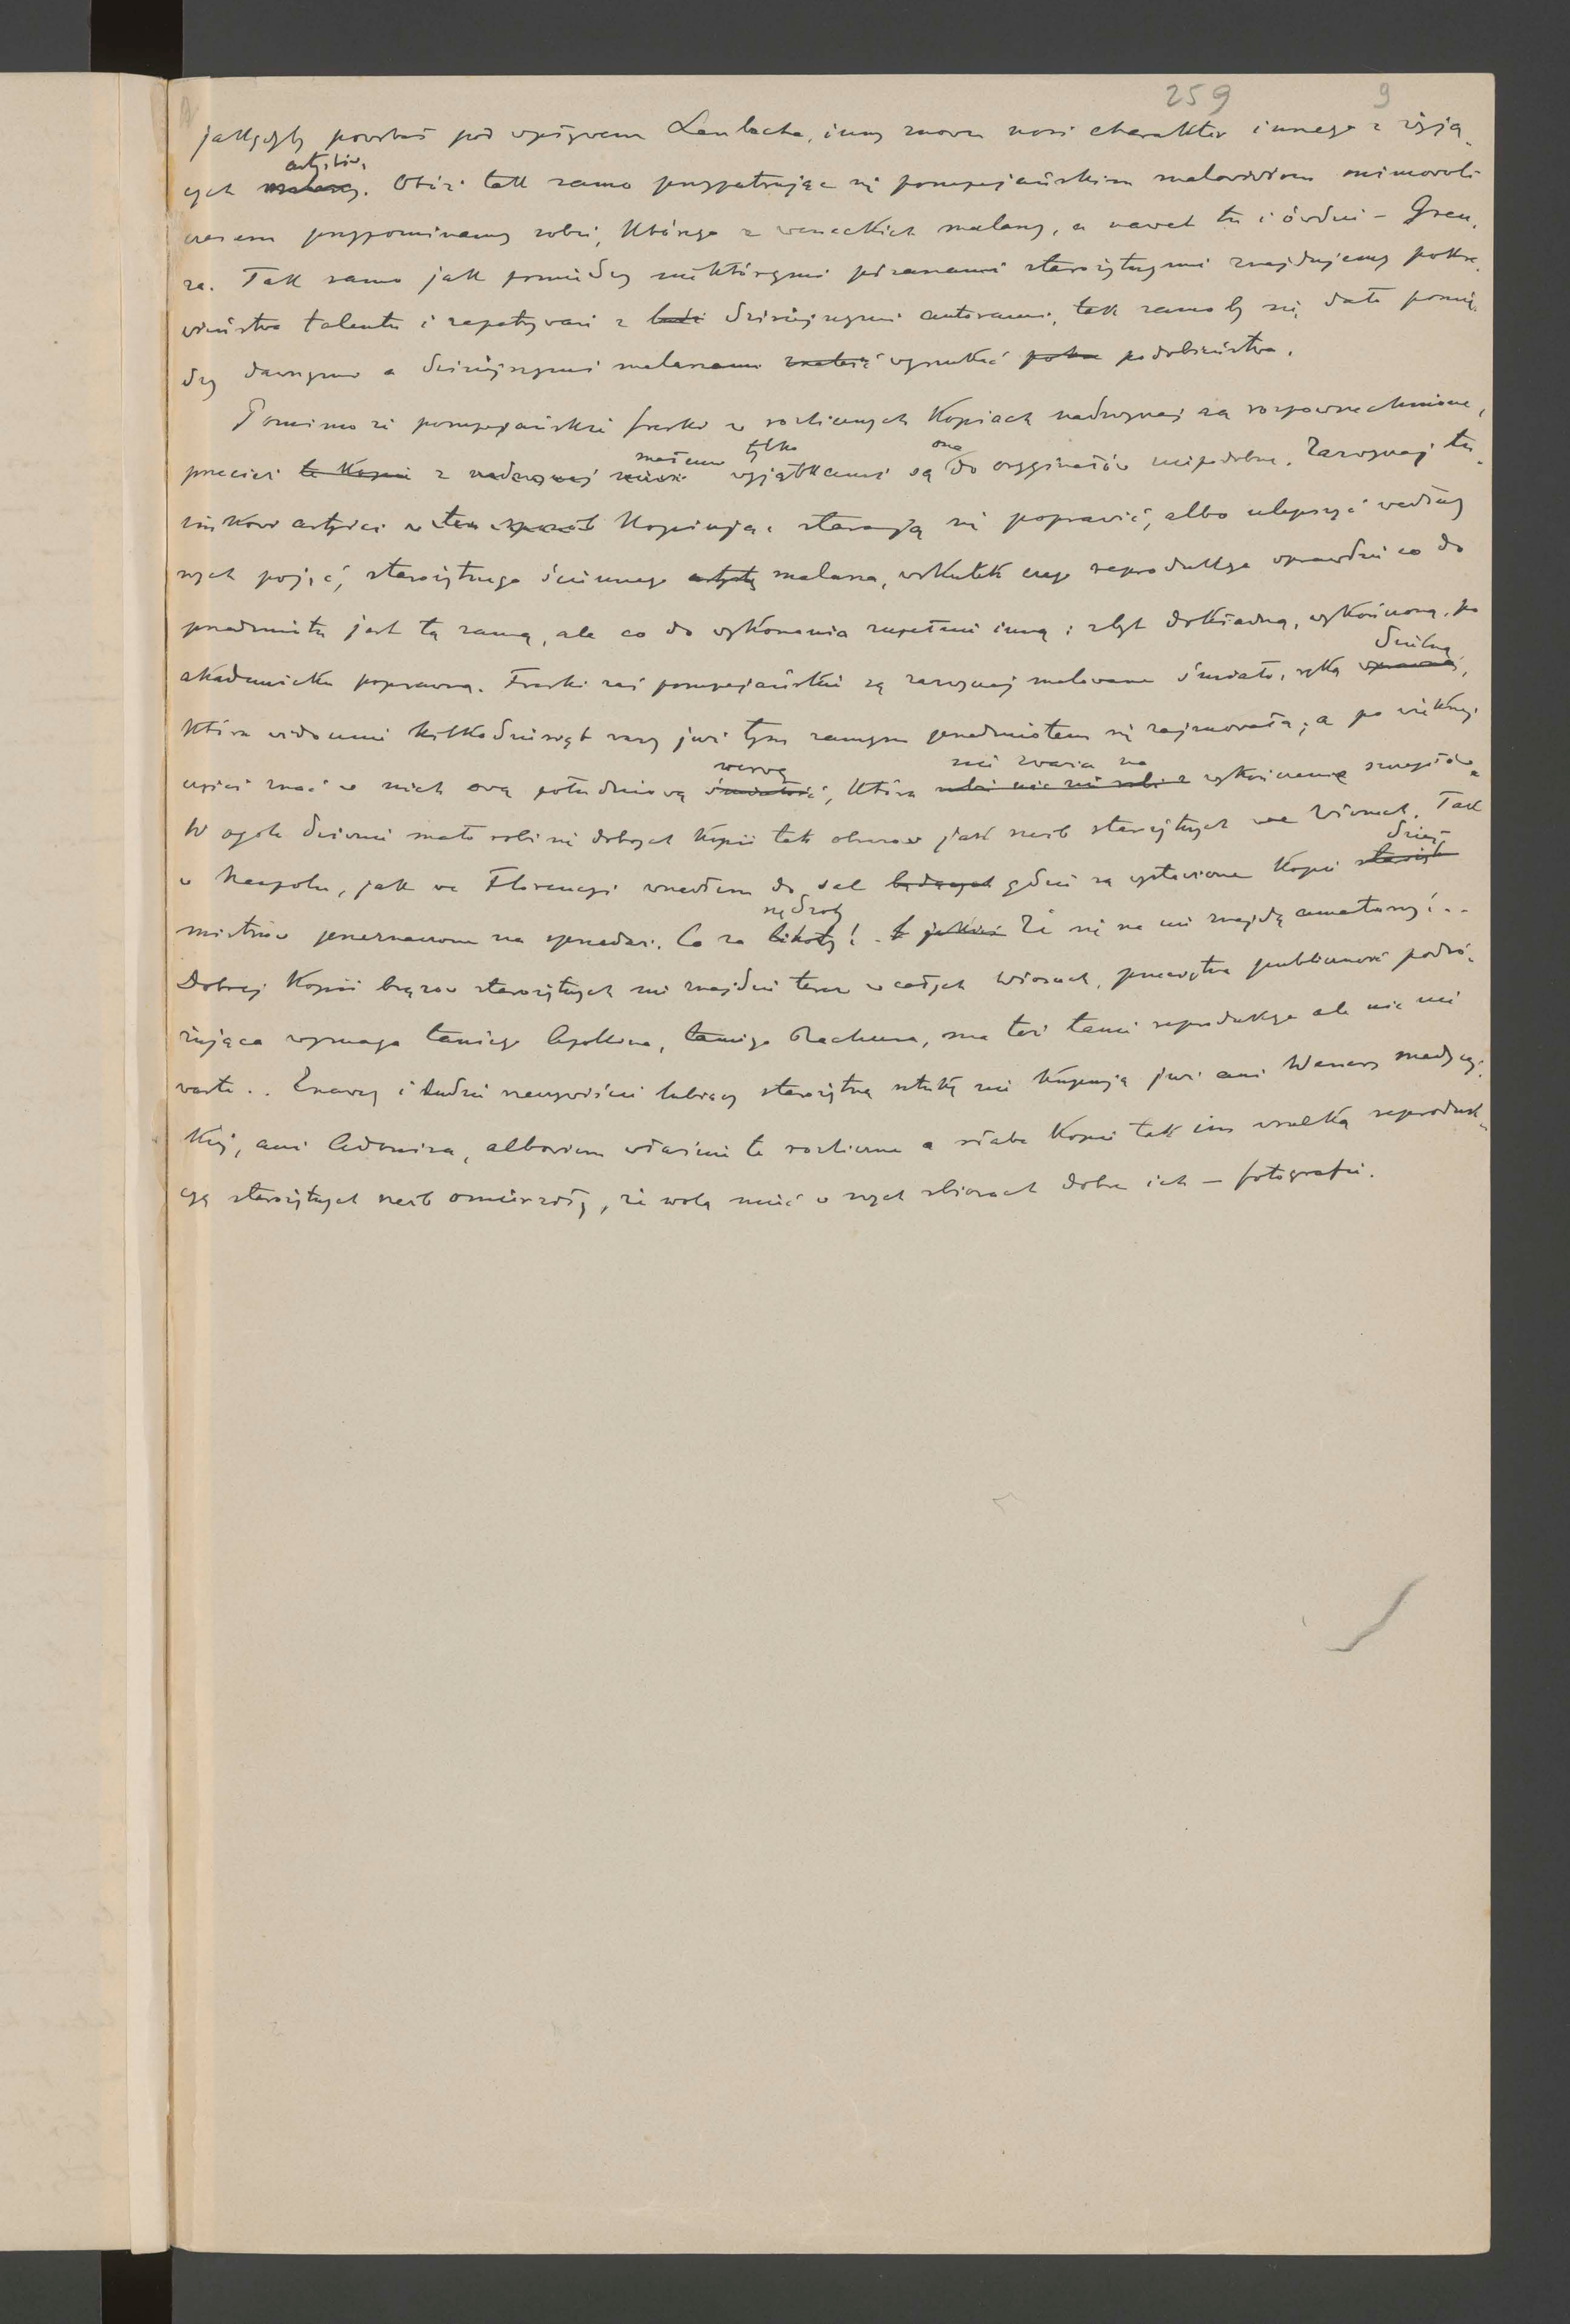 259 9
jakgdyby powstał pod wpływem Lenbacha, inny znowu nosi charakter innego z żyją-
cych malarzy. artystów. Otóż tak samo przypatrując się pompejańskim malowidłom mimowoli
czasem przypominamy sobie, którego z weneckich malarzy, a nawet tu i ówdzie – Greu-
za. Tak samo jak pomiędzy niektórymi pisarzami starożytnymi znajdujemy pokre-
wieństwa talentu i zapatrywań z dzisiejszymi autorami, tak samo by się dało pomię-
dzy dawnymi a dzisiejszymi malarzami znaleść wyszukać pokre podobieństwa.
Pomimo że pompejańskie freski w rozlicznych kopiach nadzwyczaj są rozpowszechnione,
przecież te kopie z nadzwyczaj małemi tylko wyjątkami są one do oryginałów niepodobne. Zazwyczaj tu-
zinkowi artyści w ten sposób kopiując starają się poprawić, albo ulepszyć według
swych pojęć, starożytnego ściennego artystę malarza, wskutek czego reprodukcya wprawdzie co do
przedmiotu jest tą samą, ale co do wykonania zupełnie inną: zbyt dokładną, wykończoną, po
akademicku poprawną. Freski zaś pompejańskie są zazwyczaj malowane śmiało, ręką wprawną, dzielną,
która widocznie kilkadziesiąt razy już tym samym przedmiotem się zajmowała; a po większej
części znać w nich ową południową śmiałość werwę, która nie zważa na wykończenie szczegółów.
W ogóle dziwnie mało robi się dobrych kopii tak obrazów jak rzeźb starożytnych we Włoszech. Tak
w Neapolu, jak we Florencyi wszedłem do sal będących gdzie są wystawione kopie staroż dzieł
mistrzów przeznaczone na sprzedaż. Co za lichoty! nędzoty Że się na nie znajdą amatorzy!..
Dobrej kopii brązów starożytnych nie znajdzie teraz w całych Włoszech, przeciętna publiczność podró-
żująca wymaga taniego Apollina, taniego Bachusa, ma też tanie reprodukcye ale nic nie
warte.. Znawcy i ludzie rzeczywiście lubiący starożytną sztukę nie kupują już ani Wenery medycej-
skiej, ani Adonisa, albowiem właśnie te rozliczne a słabe kopie tak im wszelką reproduk-
cyą starożytnych rzeźb omierzłą, że wolą mieć w swych zbiorach dobre ich – fotografie.